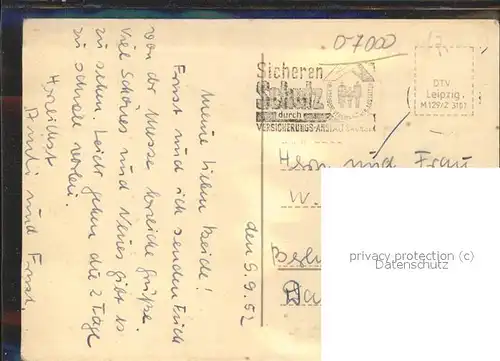 07000
den 5.9.52
Meine lieben Beide!
Ernst und ich senden Euch
von der Messe herzliche Grüße.
Viel Schönes und Neues gibt es
zu sehen. Leider gehen die 2 Tage
zu schnell vorbei.
Herzlichst
und Ernst.
Sicheren
Schutz
durch
VERSICHERUNGS-ANSTALT
DTV
Leipzig.
M 129/Z 3167
Herrn und Frau
W.
privacy protection (c)
Datenschutz